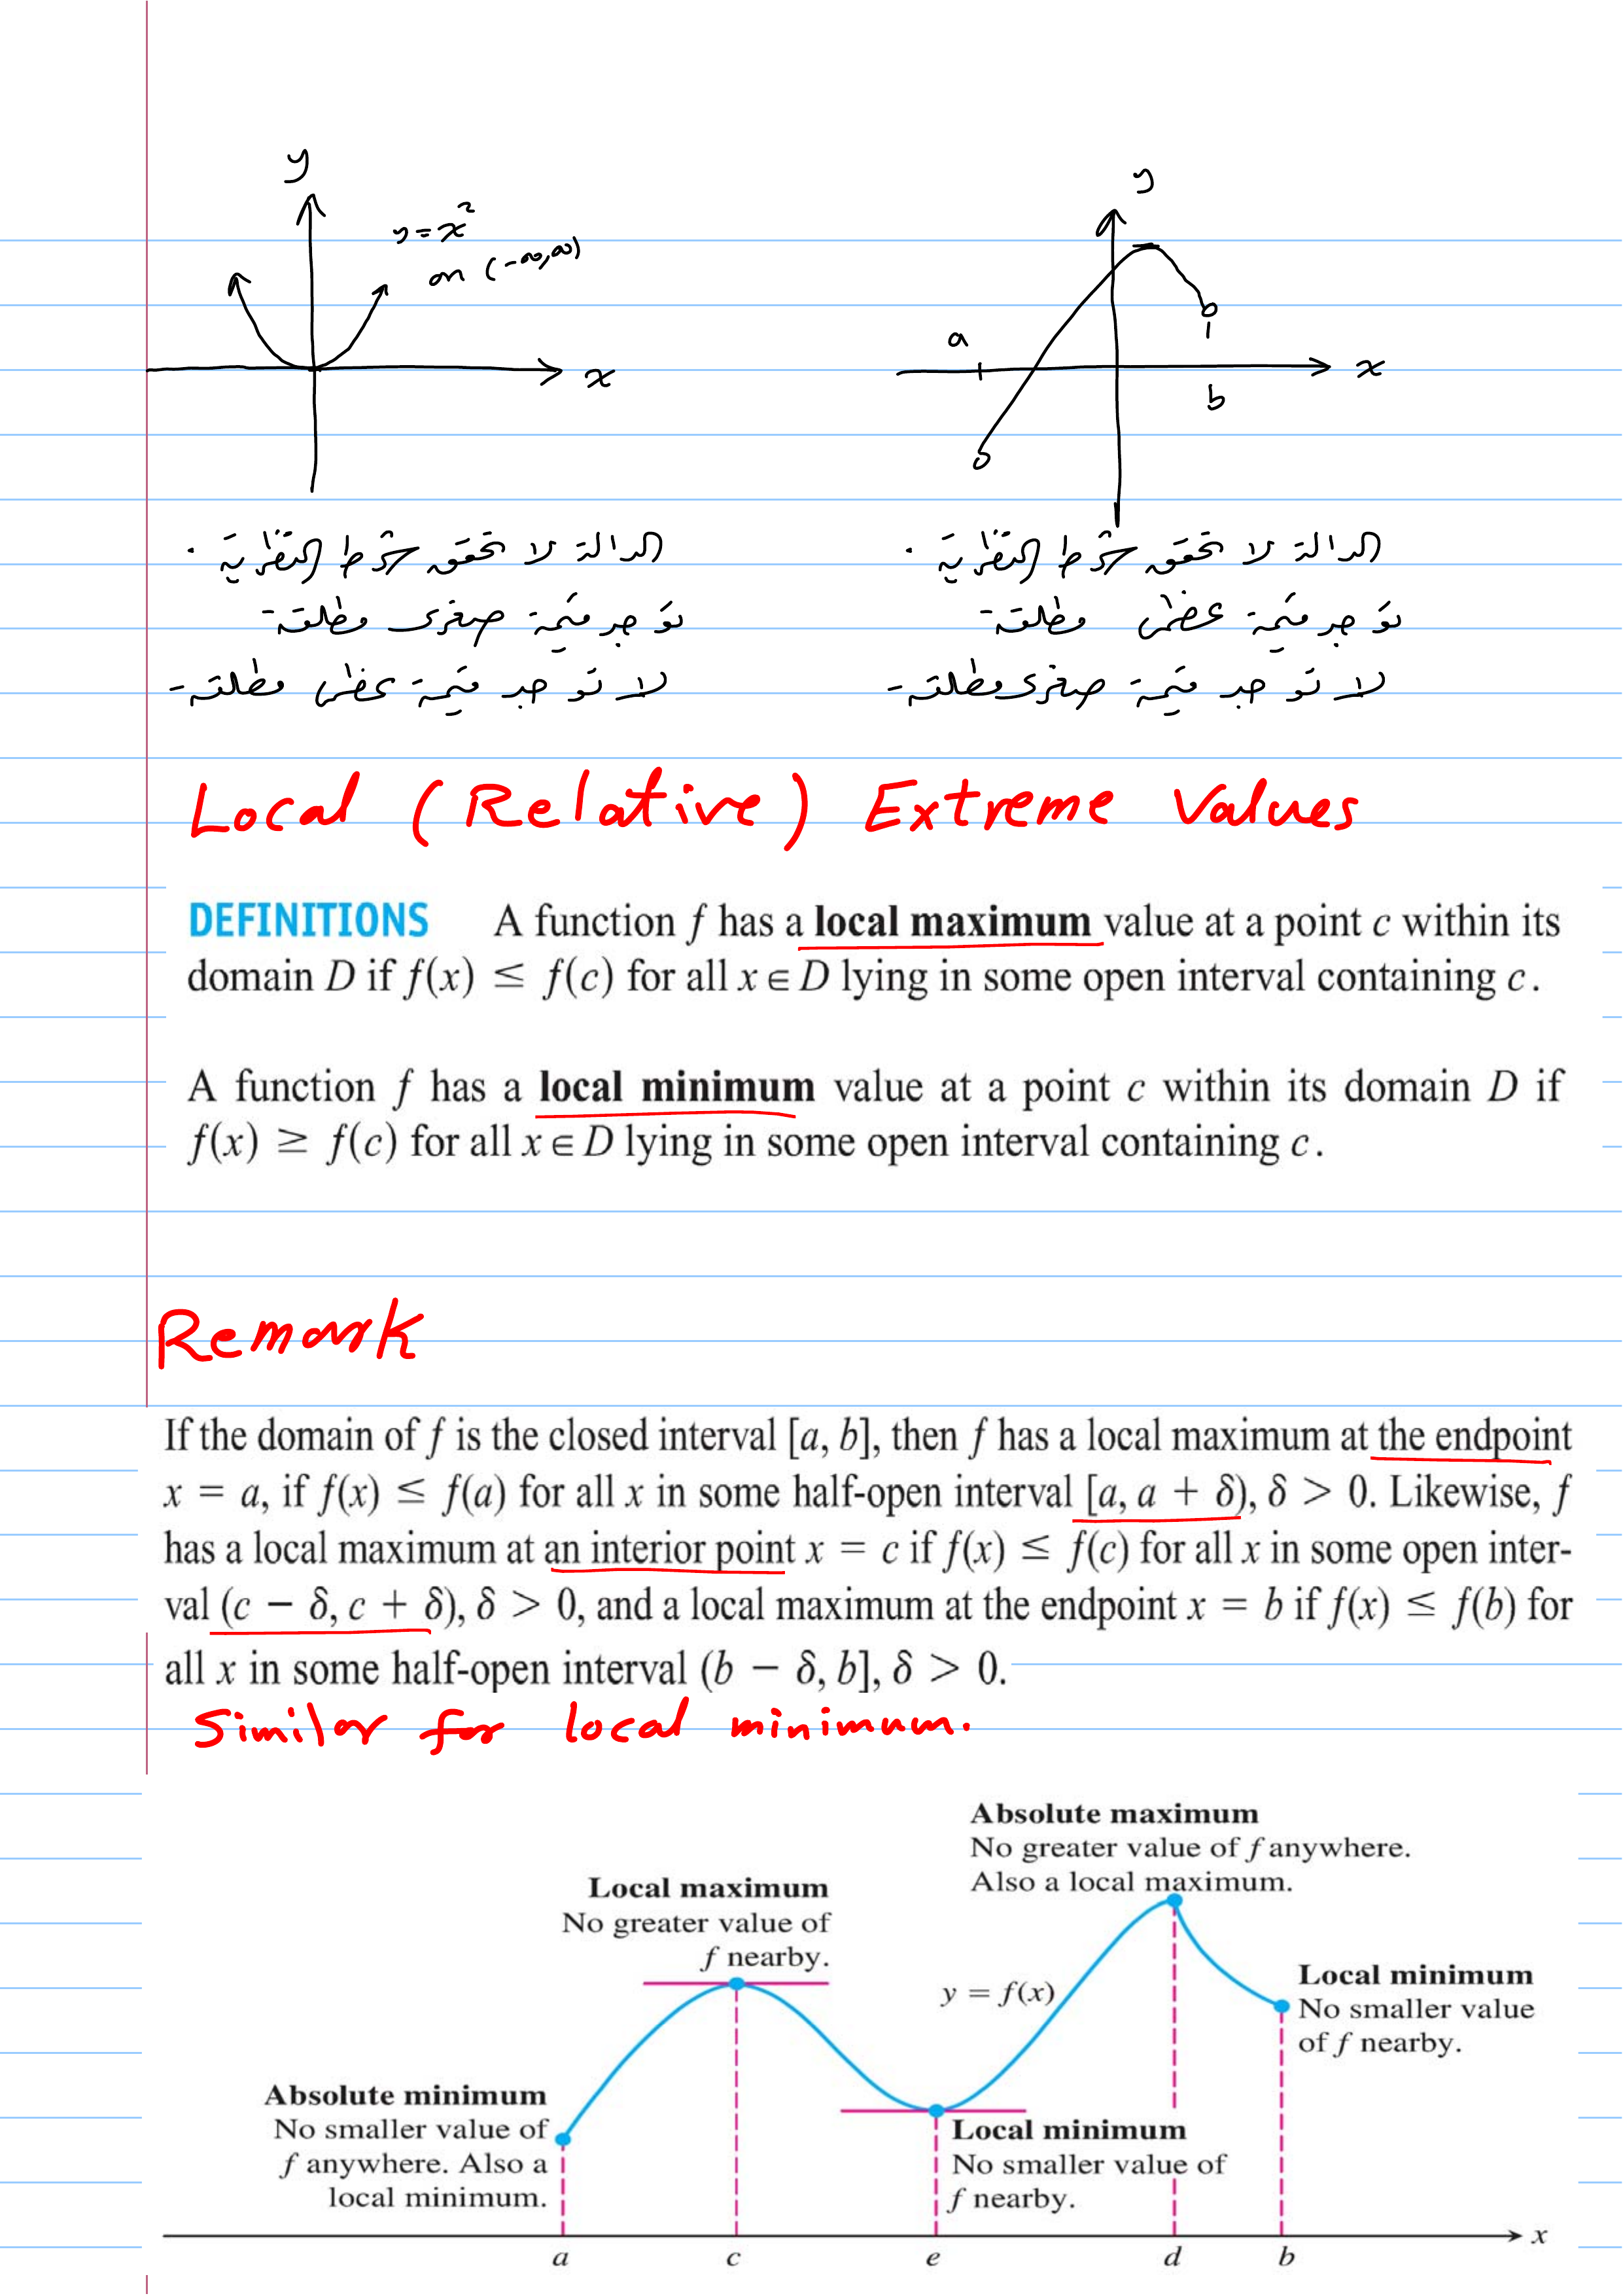 y
y = x²
on (-∞,∞)
x
y
a
x
b
الدالة لا تحقق شرط النظرية .
توجد قيمة صغرى مطلقة-
لا توجد قيمة عظمى مطلقة-
الدالة لا تحقق شرط النظرية .
توجد قيمة عظمى مطلقة-
لا توجد قيمة صغرى مطلقة-
Local (Relative) Extreme Values
DEFINITIONS A function f has a local maximum value at a point c within its
domain D if f(x) ≤ f(c) for all x ∈ D lying in some open interval containing c.
A function f has a local minimum value at a point c within its domain D if
f(x) ≥ f(c) for all x ∈ D lying in some open interval containing c.
Remark
If the domain of f is the closed interval [a, b], then f has a local maximum at the endpoint
x = a, if f(x) ≤ f(a) for all x in some half-open interval [a, a + δ), δ > 0. Likewise, f
has a local maximum at an interior point x = c if f(x) ≤ f(c) for all x in some open inter-
val (c − δ, c + δ), δ > 0, and a local maximum at the endpoint x = b if f(x) ≤ f(b) for
all x in some half-open interval (b − δ, b], δ > 0.
Similar for local minimum.
Absolute maximum
No greater value of f anywhere.
Also a local maximum.
Local maximum
No greater value of
f nearby.
y = f(x)
Local minimum
No smaller value
of f nearby.
Absolute minimum
No smaller value of
f anywhere. Also a
local minimum.
Local minimum
No smaller value of
f nearby.
x
a c e d b